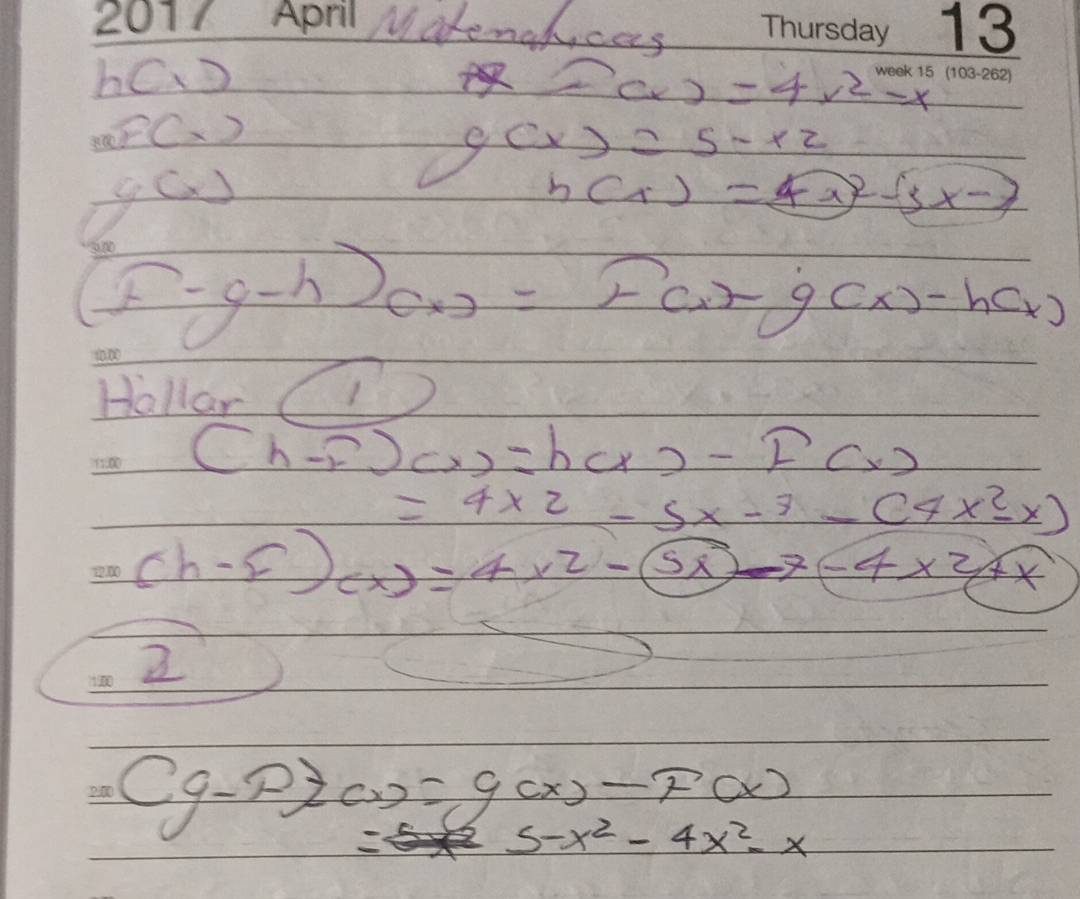 2017 April Matematicas Thursday 13
week 15 (103-262)
h(x) F(x) = 4x2 - x
8.00 F(x) g(x) = 5 - x2
g(x) h(x) = 4x2 - 5x - 7
9.00
(F - g - h)(x) = F(x) - g(x) - h(x)
10.00
Hallar 1
11.00 (h - F)(x) = h(x) - F(x)
= 4x2 - 5x - 7 - (4x2 - x)
12.00 (h - F)(x) = 4x2 - 5x - 7 - 4x2 + x
1.00 2
2.00 (g - F)(x) = g(x) - F(x)
= 5 - x2 - 4x2 - x